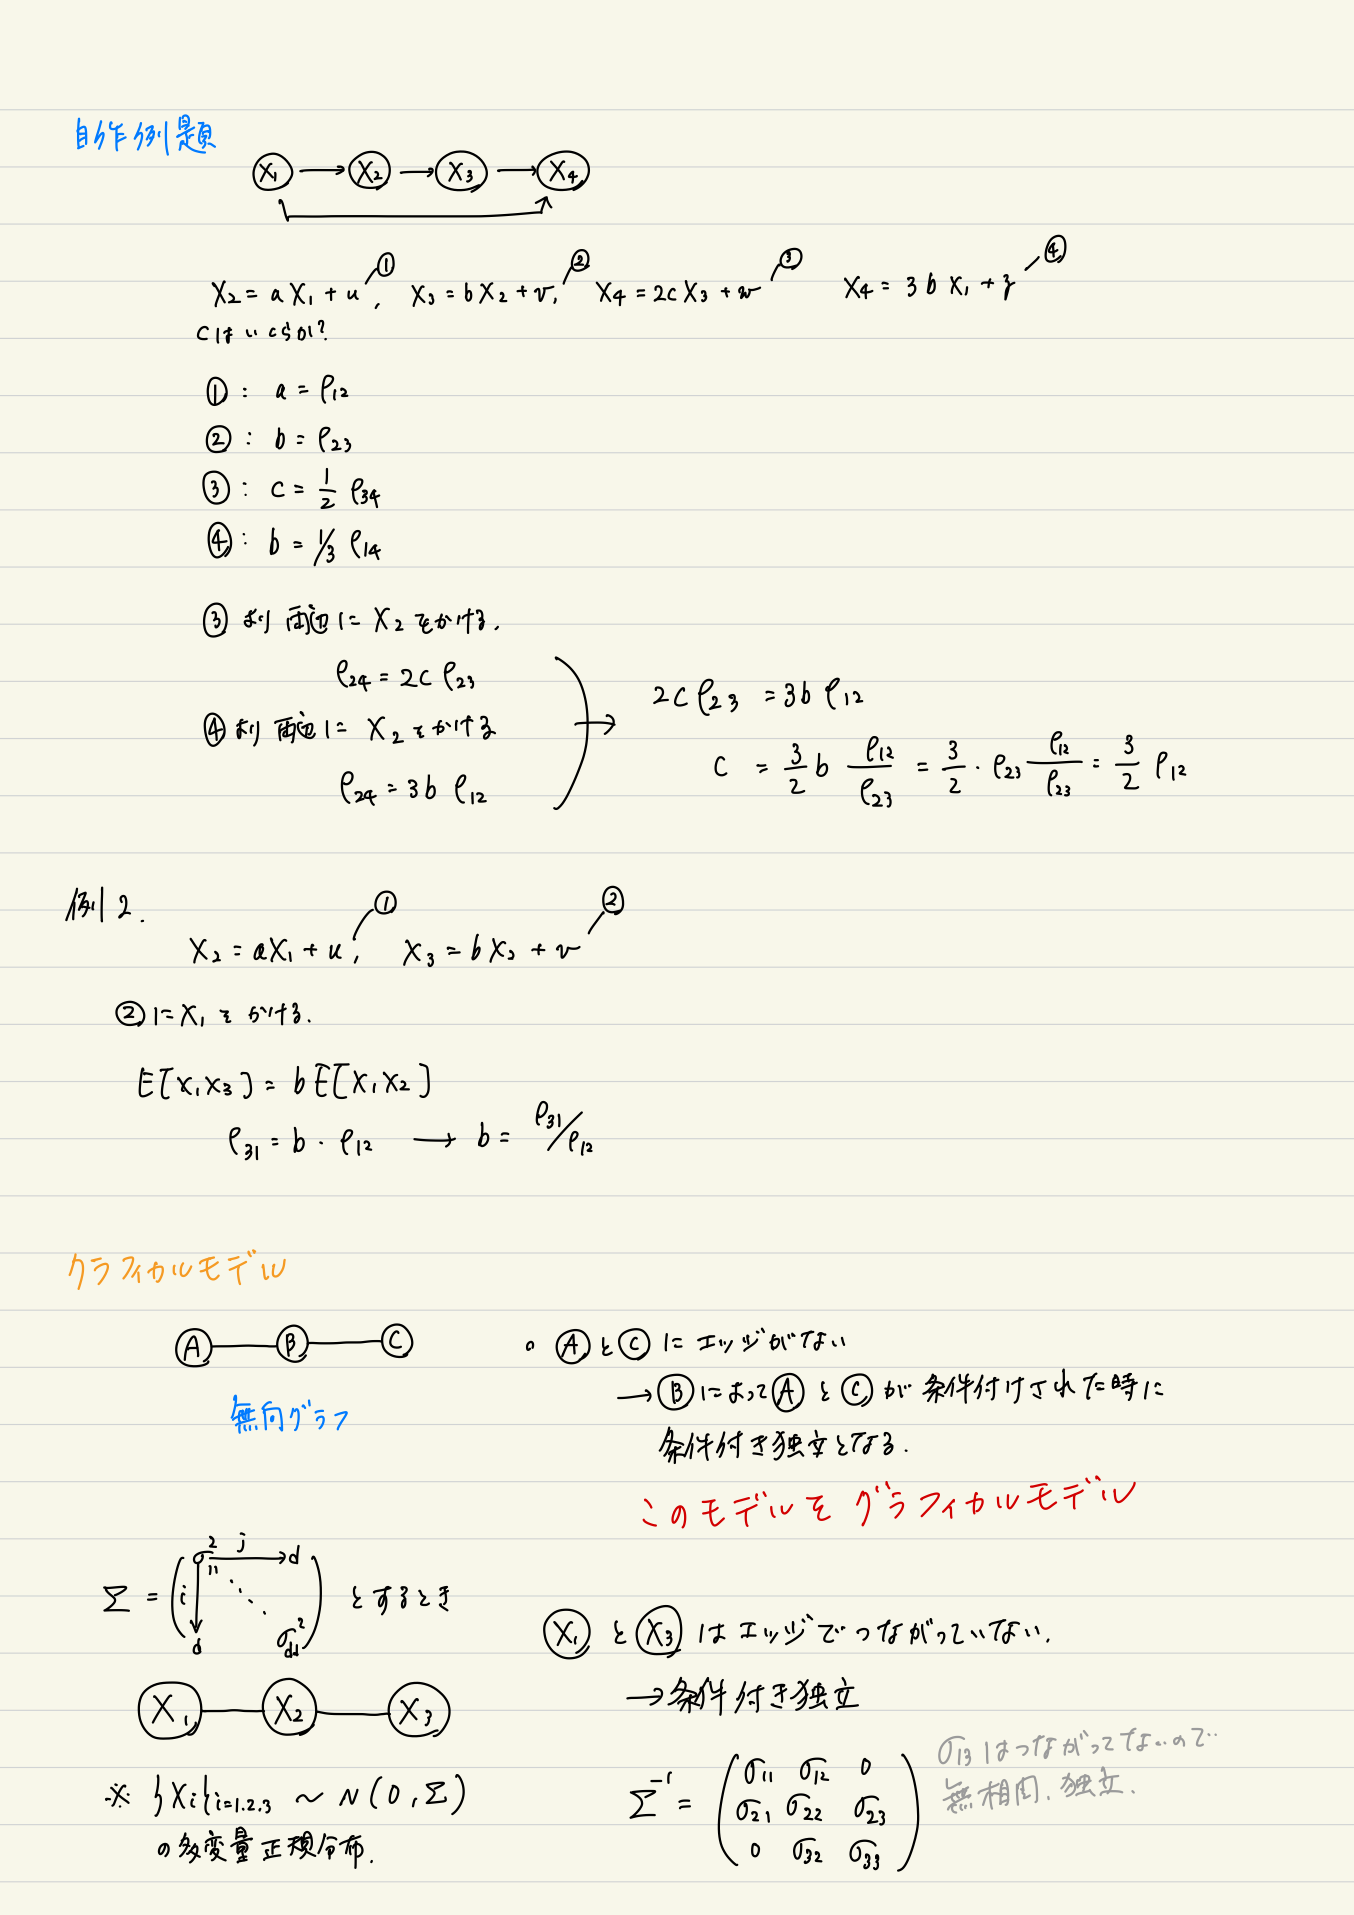 自作例題
X₁ → X₂ → X₃ → X₄
① ② ③ ④
X₂ = aX₁ + u, X₃ = bX₂ + v, X₄ = 2cX₃ + w X₄ = 3bX₁ + z
cはいくらか?
① : a = ρ₁₂
② : b = ρ₂₃
③ : c = 1/2 ρ₃₄
④ : b = 1/3 ρ₁₄
③ より 両辺に X₂ をかける.
ρ₂₄ = 2c ρ₂₃
④ より 両辺に X₂ をかける
ρ₂₄ = 3b ρ₁₂
→ 2c ρ₂₃ = 3b ρ₁₂
c = 3/2 b ρ₁₂/ρ₂₃ = 3/2 · ρ₂₃ ρ₁₂/ρ₂₃ = 3/2 ρ₁₂
例2.
① ②
X₂ = aX₁ + u, X₃ = bX₂ + v
②に X₁ を かける.
E[X₁X₃] = bE[X₁X₂]
ρ₃₁ = b · ρ₁₂ → b = ρ₃₁/ρ₁₂
クラフィカルモデル
A B C
無向グラフ
○ A と C に エッジがない
→ B によって A と C が 条件付けされた時に
条件付き独立となる.
このモデルを グラフィカルモデル
Σ = ( σ²₁₁ j → d i ↓ d ⋱ σ²dd ) とするとき
X₁ X₂ X₃
※ {Xi}i=1.2.3 ~ N(0, Σ)
の多変量正規分布.
X₁ と X₃ はエッジでつながっていない.
→条件付き独立
Σ⁻¹ = ( σ₁₁ σ₁₂ 0
σ₂₁ σ₂₂ σ₂₃
0 σ₃₂ σ₃₃ )
σ₁₃ はつながってないので
無相関、独立.